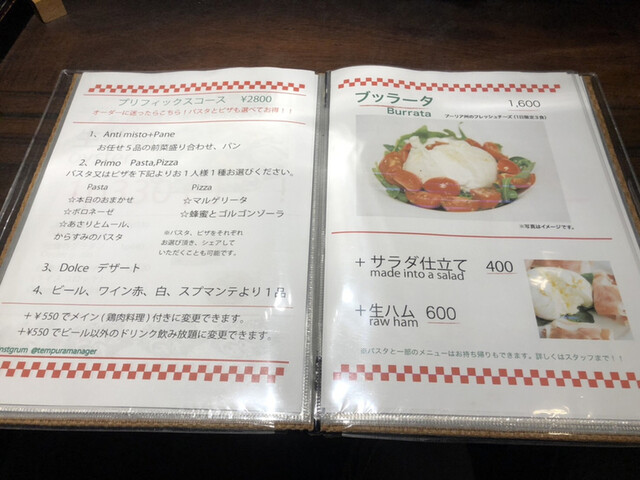 プリフィックスコース ¥2800
オーダーに迷ったらこちら！パスタとピザも選べてお得！！
1、Anti misto+Pane
お任せ５品の前菜盛り合わせ、パン
2、Primo Pasta,Pizza
パスタ又はピザを下記よりお１人様１種お選びください。
Pasta Pizza
☆本日のおまかせ ☆マルゲリータ
☆ボロネーゼ ☆蜂蜜とゴルゴンゾーラ
☆あさりとムール、
からすみのパスタ
※パスタ、ピザをそれぞれ
お選び頂き、シェアして
いただくことも可能です。
3、Dolce デザート
4、ビール、ワイン赤、白、スプマンテより１品
＋￥550でメイン(鶏肉料理)付きに変更できます。
＋¥550でビール以外のドリンク飲み放題に変更できます。
nstgrum @tempuramanager
ブッラータ 1,600
Burrata プーリア州のフレッシュチーズ（1日限定３食）
※写真はイメージです。
＋サラダ仕立て 400
made into a salad
＋生ハム 600
raw ham
※パスタと一部のメニューはお持ち帰りもできます。詳しくはスタッフまで！！